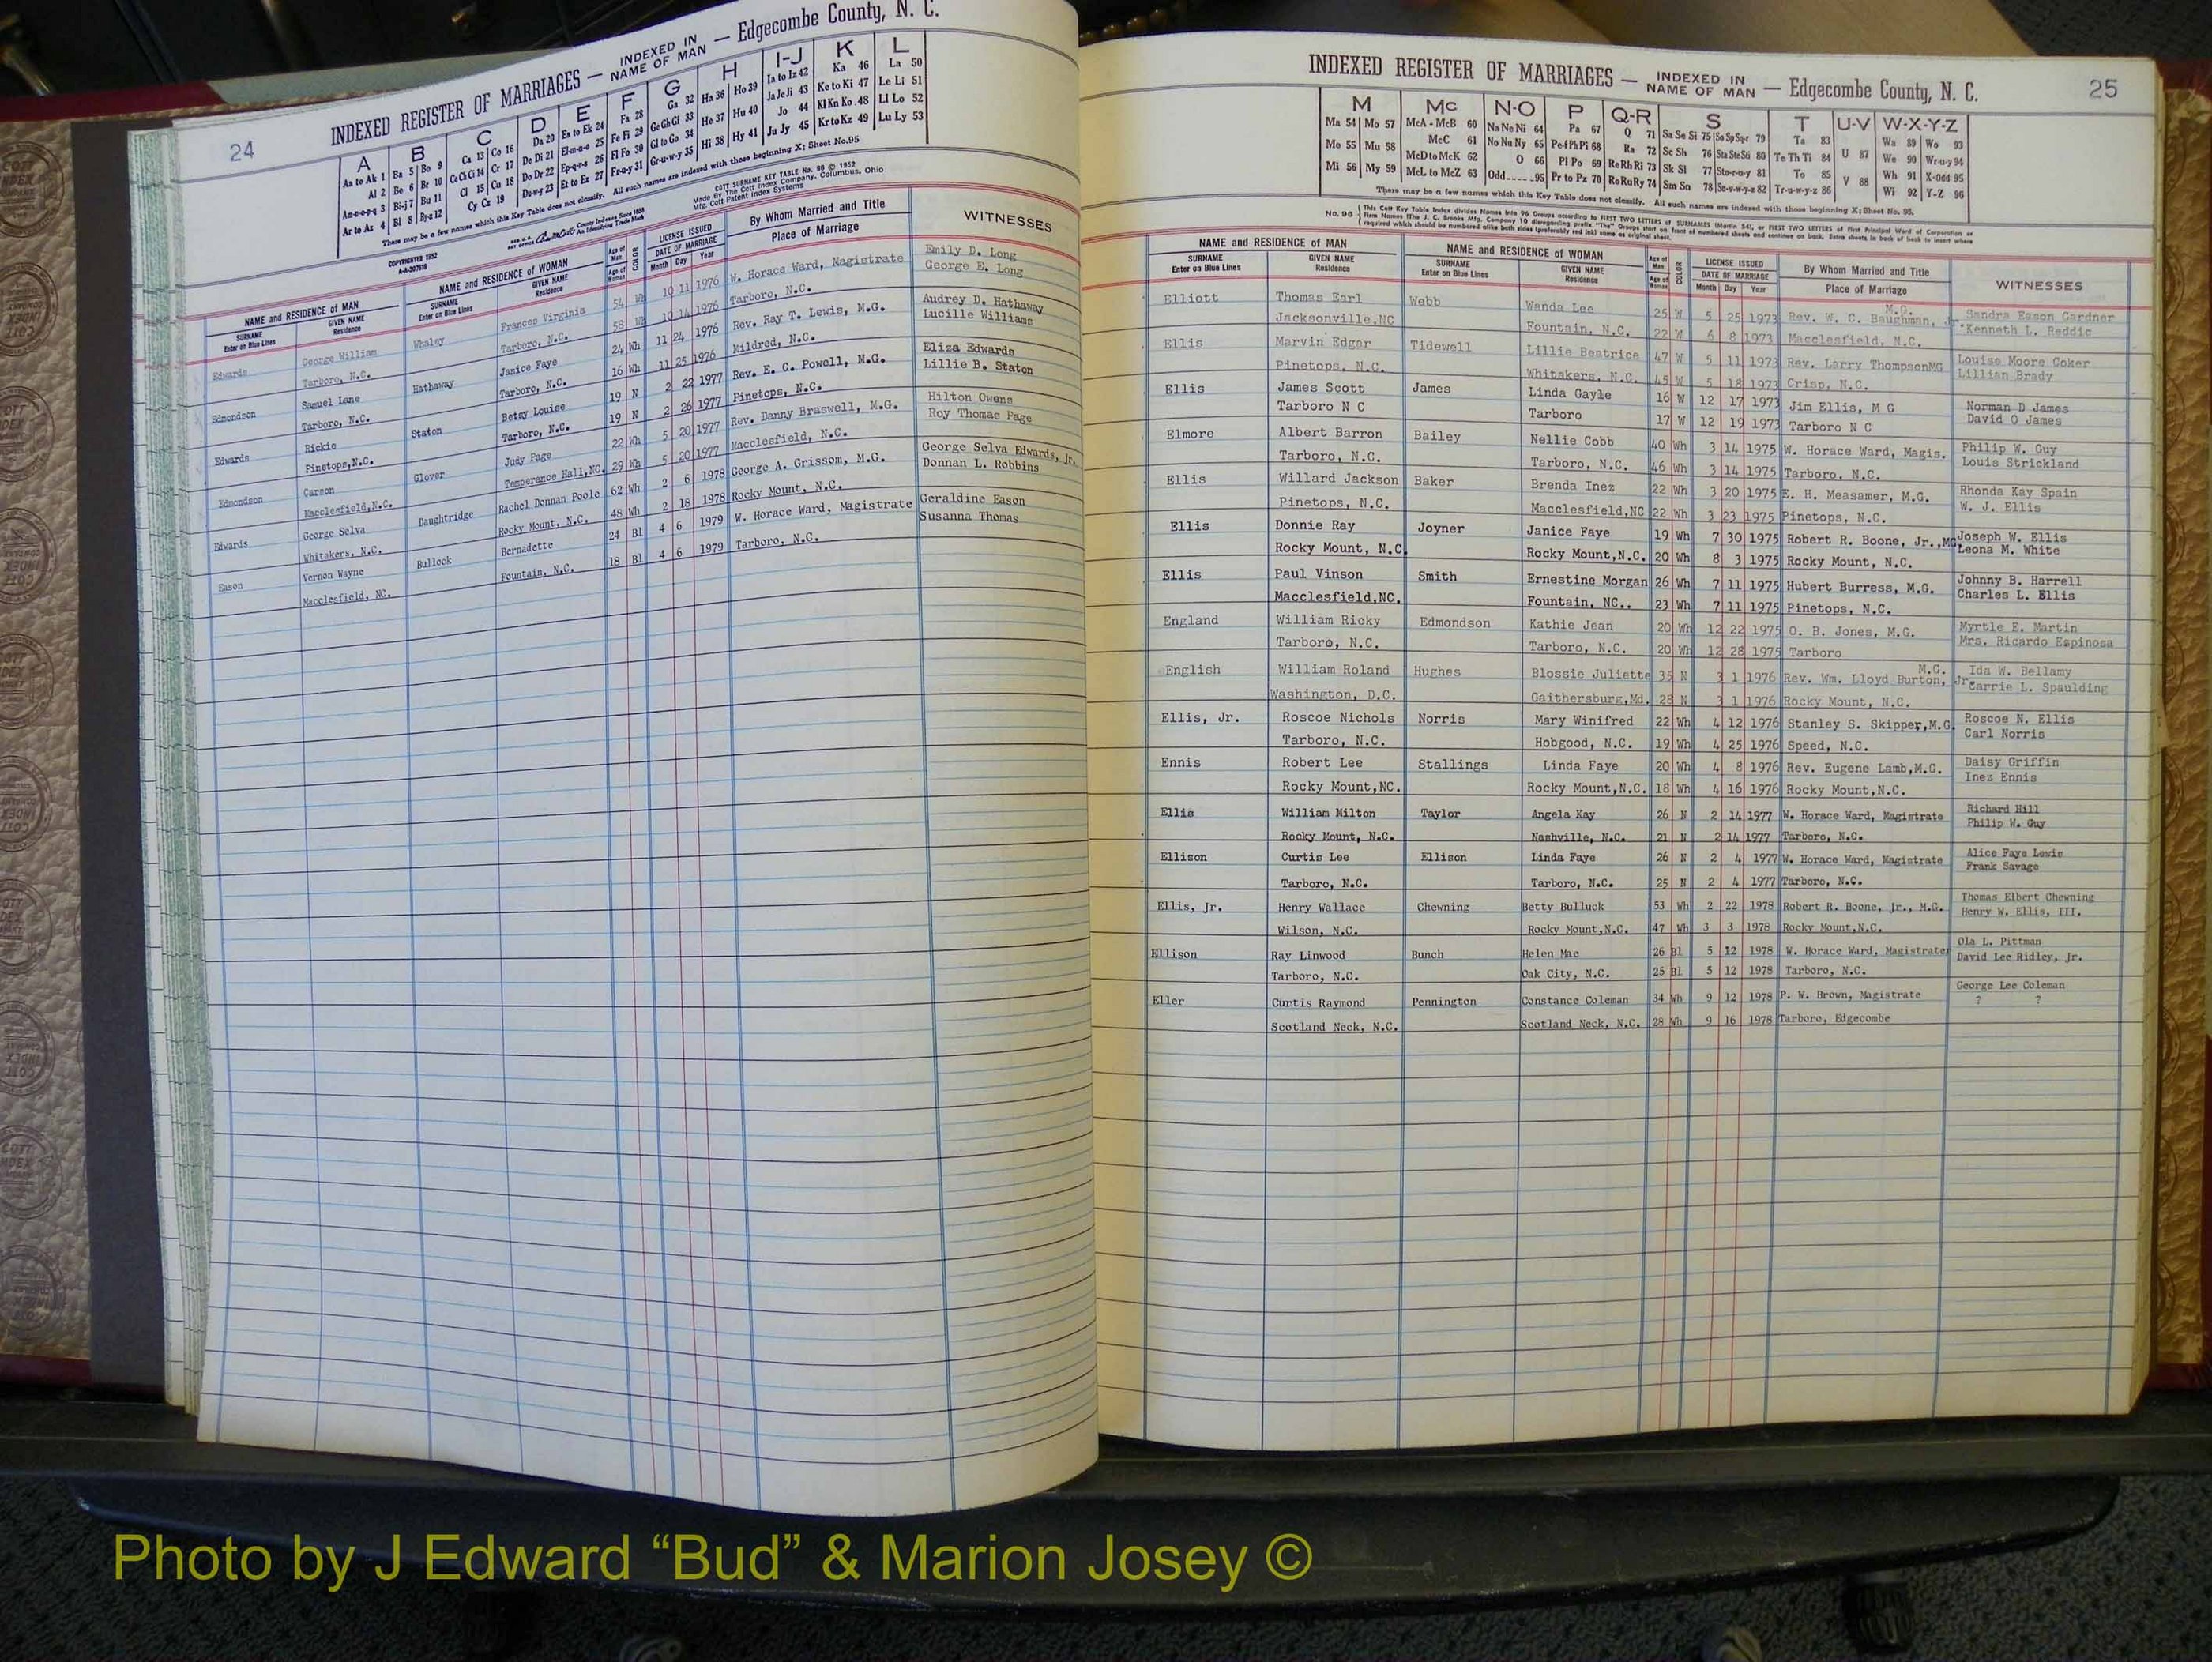 24
INDEXED REGISTER OF MARRIAGES — INDEXED IN NAME OF MAN — Edgecombe County, N. C.
A B C D E F G H I-J K L
Aa to Ak 1 Ba 5 Bo 9 Ca 13 Co 16 Da 20 Ea to Ek 24 Fa 28 Ga 32 Ha 36 Ho 39 Ia to Iz 42 Ka 46 La 50
Al 2 Be 6 Br 10 Ce Ch Ci 14 Cr 17 De Di 21 El-m-n-o 25 Fe Fi 29 Ge Gh Gi 33 He 37 Hu 40 Ja Je Ji 43 Ke to Ki 47 Le Li 51
Am-n-o-p-q 3 Bi-j 7 Bu 11 Cl 15 Cu 18 Do Dr 22 Ep-q-r-s 26 Fl Fo 30 Gl to Go 34 Hi 38 Hy 41 Jo 44 Kl Kn Ko 48 Ll Lo 52
Ar to Az 4 Bl 8 By-z 12 Cy Cz 19 Du-w-y 23 Et to Ez 27 Fr-u-y 31 Gr-u-w-y 35 Ju Jy 45 Kr to Kz 49 Lu Ly 53
There may be a few names which this Key Table does not classify. All such names are indexed with those beginning X; Sheet No. 95
COPYRIGHTED 1952
COTT SURNAME KEY TABLE No. 96 © 1952
Made By The Cott Index Company, Columbus, Ohio
Mfg. Cott Patent Index Systems
NAME and RESIDENCE OF MAN
SURNAME Enter on Blue Lines
GIVEN NAME Residence
NAME and RESIDENCE OF WOMAN
SURNAME Enter on Blue Lines
GIVEN NAME Residence
Age of Man
Age of Woman
COLOR
LICENSE ISSUED
DATE OF MARRIAGE
Month Day Year
By Whom Married and Title
Place of Marriage
WITNESSES
Edwards George William Whaley Frances Virginia 54 Wh 10 11 1976 W. Horace Ward, Magistrate Emily D. Long
Tarboro, N.C. Tarboro, N.C. 58 Wh 10 14 1976 Tarboro, N.C. George E. Long
Edmondson Samuel Lane Hathaway Janice Faye 24 Wh 11 24 1976 Rev. Ray T. Lewis, M.G. Audrey D. Hathaway
Tarboro, N.C. Tarboro, N.C. 16 Wh 11 25 1976 Mildred, N.C. Lucille Williams
Edwards Rickie Staton Betsy Louise 19 N 2 22 1977 Rev. E. C. Powell, M.G. Eliza Edwards
Pinetops,N.C. Tarboro, N.C. 19 N 2 26 1977 Pinetops, N.C. Lillie B. Staton
Edmondson Carson Glover Judy Page 22 Wh 5 20 1977 Rev. Danny Braswell, M.G. Hilton Owens
Macclesfield,N.C. Temperance Hall,NC. 29 Wh 5 20 1977 Macclesfield, N.C. Roy Thomas Page
Edwards George Selva Daughtridge Rachel Donnan Poole 62 Wh 2 6 1978 George A. Grissom, M.G. George Selva Edwards, Jr.
Whitakers, N.C. Rocky Mount, N.C. 48 Wh 2 18 1978 Rocky Mount, N.C. Donnan L. Robbins
Eason Vernon Wayne Bullock Bernadette 24 Bl 4 6 1979 W. Horace Ward, Magistrate Geraldine Eason
Macclesfield, NC. Fountain, N.C. 18 Bl 4 6 1979 Tarboro, N.C. Susanna Thomas
INDEXED REGISTER OF MARRIAGES — INDEXED IN NAME OF MAN — Edgecombe County, N. C.
25
M Mc N-O P Q-R S T U-V W-X-Y-Z
Ma 54 Mo 57 McA - McB 60 Na Ne Ni 64 Pa 67 Q 71 Sa Se Si 75 So Sp Sq-r 79 Ta 83 Wa 89 Wo 93
Me 55 Mu 58 McC 61 No Nu Ny 65 Pe-f Ph Pi 68 Ra 72 Sc Sh 76 Sta Ste Sti 80 Te Th Ti 84 U 87 We 90 Wr-u-y 94
Mi 56 My 59 McD to McK 62 O 66 Pl Po 69 Re Rh Ri 73 Sk Sl 77 Sto-r-u-y 81 To 85 V 88 Wh 91 X-Odd 95
McL to McZ 63 Odd 95 Pr to Pz 70 Ro Ru Ry 74 Sm Sn 78 Su-v-w-y-z 82 Tr-u-w-y-z 86 Wi 92 Y-Z 96
There may be a few names which this Key Table does not classify. All such names are indexed with those beginning X; Sheet No. 95.
No. 96
NAME and RESIDENCE OF MAN
SURNAME Enter on Blue Lines
GIVEN NAME Residence
NAME and RESIDENCE OF WOMAN
SURNAME Enter on Blue Lines
GIVEN NAME Residence
Age of Man
Age of Woman
COLOR
LICENSE ISSUED
DATE OF MARRIAGE
Month Day Year
By Whom Married and Title
Place of Marriage
WITNESSES
Elliott Thomas Earl Webb Wanda Lee 25 W 5 25 1973 Rev. W. C. Baughman, Jr. M.G. Sandra Eason Gardner
Jacksonville,NC Fountain, N.C. 22 W 6 8 1973 Macclesfield, N.C. Kenneth L. Reddic
Ellis Marvin Edgar Tidewell Lillie Beatrice 47 W 5 11 1973 Rev. Larry ThompsonMG Louise Moore Coker
Pinetops, N.C. Whitakers, N.C. 45 W 5 18 1973 Crisp, N.C. Lillian Brady
Ellis James Scott James Linda Gayle 16 W 12 17 1973 Jim Ellis, M G Norman D James
Tarboro N C Tarboro 17 W 12 19 1973 Tarboro N C David O James
Elmore Albert Barron Bailey Nellie Cobb 40 Wh 3 14 1975 W. Horace Ward, Magis. Philip W. Guy
Tarboro, N.C. Tarboro, N.C. 46 Wh 3 14 1975 Tarboro, N.C. Louis Strickland
Ellis Willard Jackson Baker Brenda Inez 22 Wh 3 20 1975 E. H. Measamer, M.G. Rhonda Kay Spain
Pinetops, N.C. Macclesfield,NC 22 Wh 3 23 1975 Pinetops, N.C. W. J. Ellis
Ellis Donnie Ray Joyner Janice Faye 19 Wh 7 30 1975 Robert R. Boone, Jr.,MG Joseph W. Ellis
Rocky Mount, N.C. Rocky Mount,N.C. 20 Wh 8 3 1975 Rocky Mount, N.C. Leona M. White
Ellis Paul Vinson Smith Ernestine Morgan 26 Wh 7 11 1975 Hubert Burress, M.G. Johnny B. Harrell
Macclesfield,NC. Fountain, NC.. 23 Wh 7 11 1975 Pinetops, N.C. Charles L. Ellis
England William Ricky Edmondson Kathie Jean 20 Wh 12 22 1975 O. B. Jones, M.G. Myrtle E. Martin
Tarboro, N.C. Tarboro, N.C. 20 Wh 12 28 1975 Tarboro Mrs. Ricardo Espinosa
English William Roland Hughes Blossie Juliette 35 N 3 1 1976 Rev. Wm. Lloyd Burton, Jr. M.G. Ida W. Bellamy
Washington, D.C. Gaithersburg,Md. 28 N 3 1 1976 Rocky Mount, N.C. Carrie L. Spaulding
Ellis, Jr. Roscoe Nichols Norris Mary Winifred 22 Wh 4 12 1976 Stanley S. Skipper,M.G. Roscoe N. Ellis
Tarboro, N.C. Hobgood, N.C. 19 Wh 4 25 1976 Speed, N.C. Carl Norris
Ennis Robert Lee Stallings Linda Faye 20 Wh 4 8 1976 Rev. Eugene Lamb,M.G. Daisy Griffin
Rocky Mount,NC. Rocky Mount,N.C. 18 Wh 4 16 1976 Rocky Mount,N.C. Inez Ennis
Ellis William Milton Taylor Angela Kay 26 N 2 14 1977 W. Horace Ward, Magistrate Richard Hill
Rocky Mount, N.C. Nashville, N.C. 21 N 2 14 1977 Tarboro, N.C. Philip W. Guy
Ellison Curtis Lee Ellison Linda Faye 26 N 2 4 1977 W. Horace Ward, Magistrate Alice Faye Lewis
Tarboro, N.C. Tarboro, N.C. 25 N 2 4 1977 Tarboro, N.C. Frank Savage
Ellis, Jr. Henry Wallace Chewning Betty Bulluck 53 Wh 2 22 1978 Robert R. Boone, Jr., M.G. Thomas Elbert Chewning
Wilson, N.C. Rocky Mount,N.C. 47 Wh 3 3 1978 Rocky Mount,N.C. Henry W. Ellis, III.
Ellison Ray Linwood Bunch Helen Mae 26 Bl 5 12 1978 W. Horace Ward, Magistrater Ola L. Pittman
Tarboro, N.C. Oak City, N.C. 25 Bl 5 12 1978 Tarboro, N.C. David Lee Ridley, Jr.
Eller Curtis Raymond Pennington Constance Coleman 34 Wh 9 12 1978 P. W. Brown, Magistrate George Lee Coleman
Scotland Neck, N.C. Scotland Neck, N.C. 28 Wh 9 16 1978 Tarboro, Edgecombe ? ?
Photo by J Edward “Bud” & Marion Josey ©